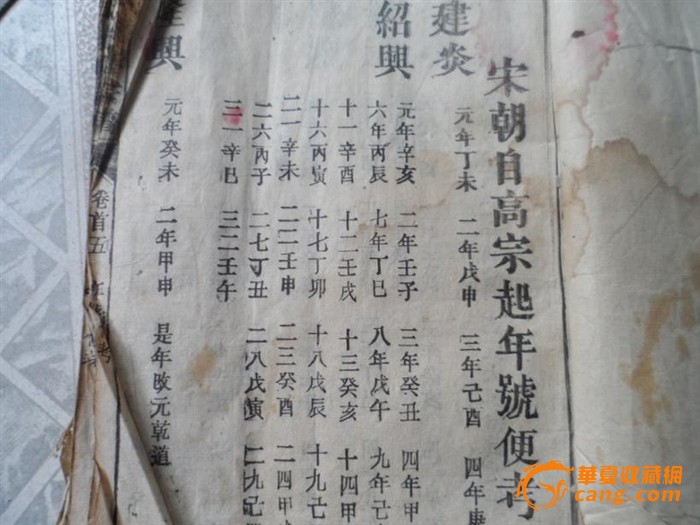 宋朝自高宗起年號便考
建炎
元年丁未 二年戊申 三年己酉 四年庚
紹興
元年辛亥 二年壬子 三年癸丑 四年甲
六年丙辰 七年丁巳 八年戊午 九年己
十一辛酉 十二壬戌 十三癸亥 十四甲
十六丙寅 十七丁卯 十八戊辰 十九己
二一辛未 二二壬申 二三癸酉 二四甲
二六丙子 二七丁丑 二八戊寅 二九己
三一辛巳 三二壬午
隆興
元年癸未 二年甲申 是年改元乾道
卷首五
華夏收藏網
cang.com